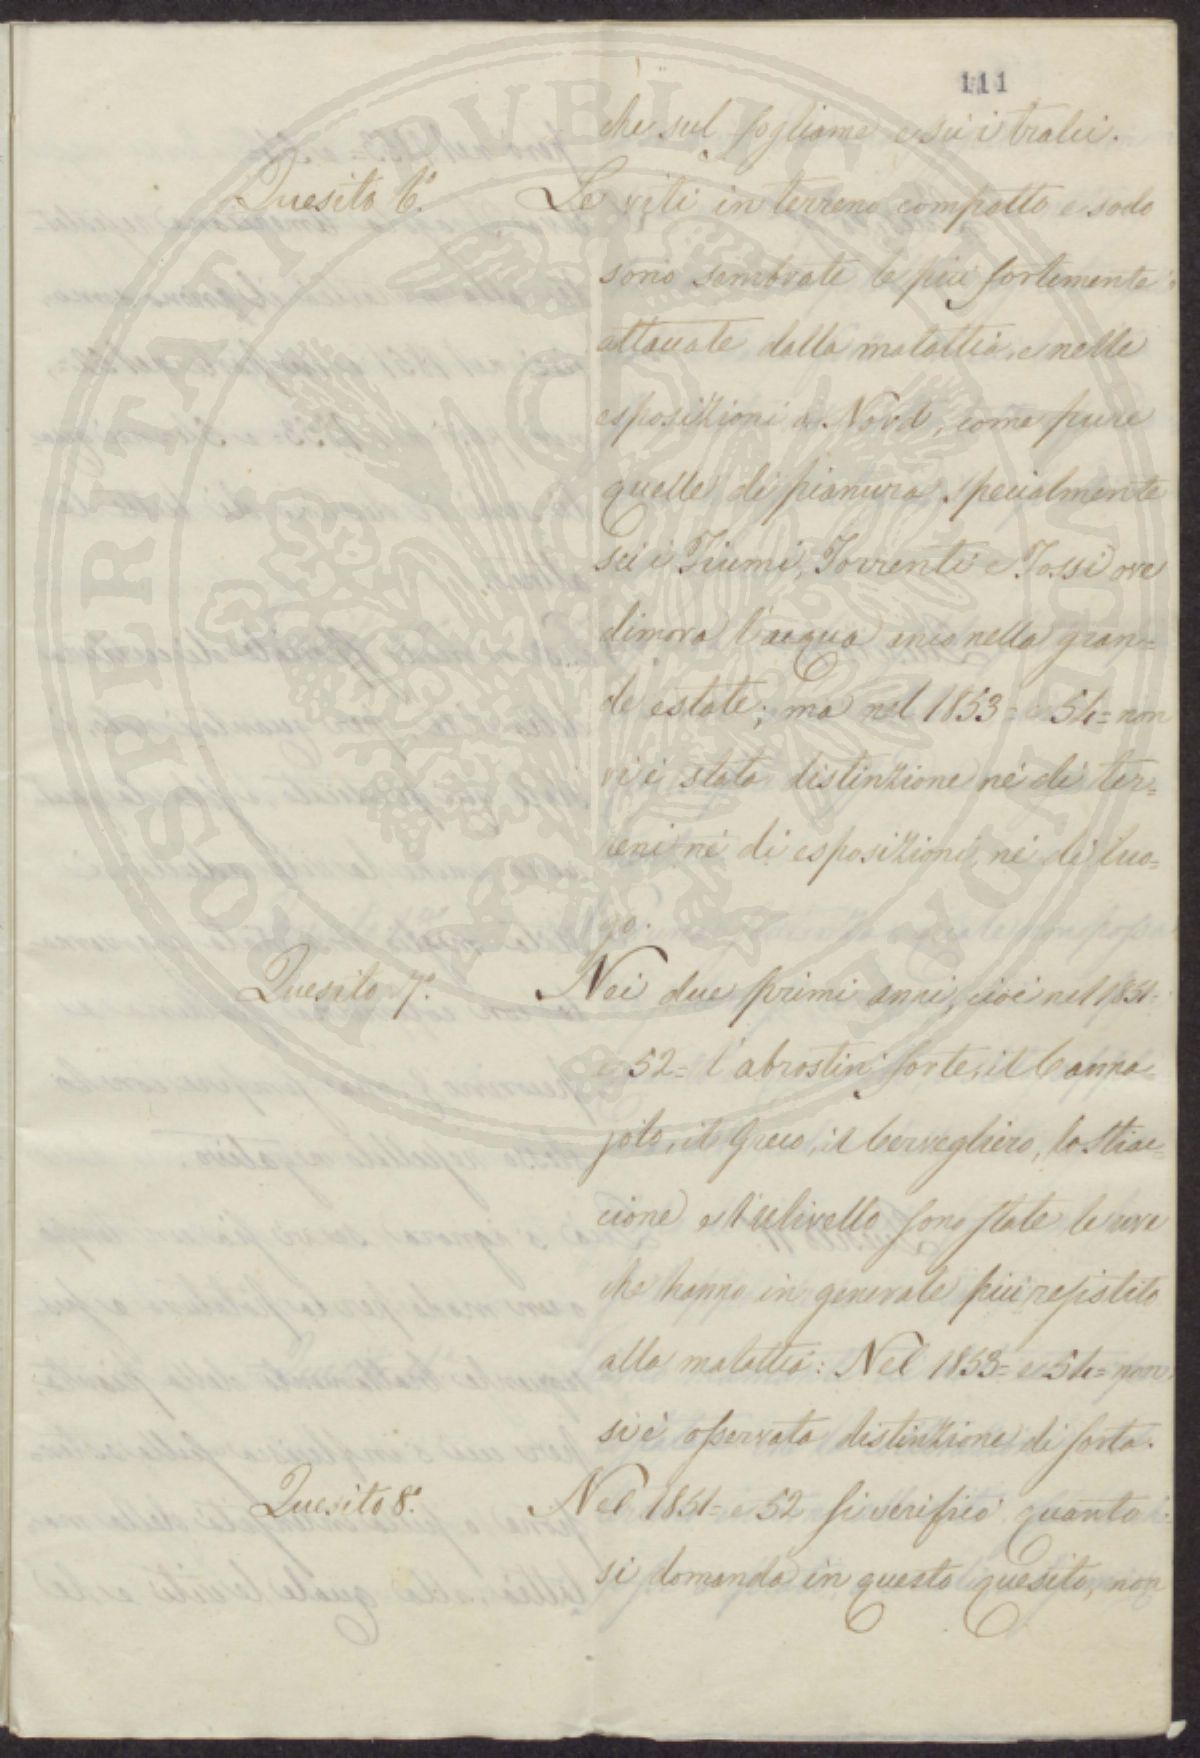 111
che sul fogliame e sù i tralci.
Quesito 6.° Le viti in terreno compatto e sodo
sono sembrate le più fortemente
attaccate dalla malattia, e nelle
esposizioni a Nord, come pure
quelle di pianura, specialmente
sù i Fiumi, Torrenti e Fossi ove
dimora l'acqua anco nella gran=
de estate; ma nel 1853= e 54= non
vi è stata distinzione nè di ter=
reni nè di esposizioni, nè di luo=
go.
Quesito 7.° Nei due primi anni, cioè nel 1851=
e 52= l'abrostin' forte, il Canna=
jolo, il Greco, il Cervegliero, lo Stiac=
cione e l'ulivello sono state le uve
che hanno in generale più resistito
alla malattia: Nel 1853= e 54= non
si è osservata distinzione di sorta.
Quesito 8.° Nel 1851= e 52 si verificò quanto
si domanda in questo quesito, non
PROSPERITATI PUBLICAE AUGENDAE